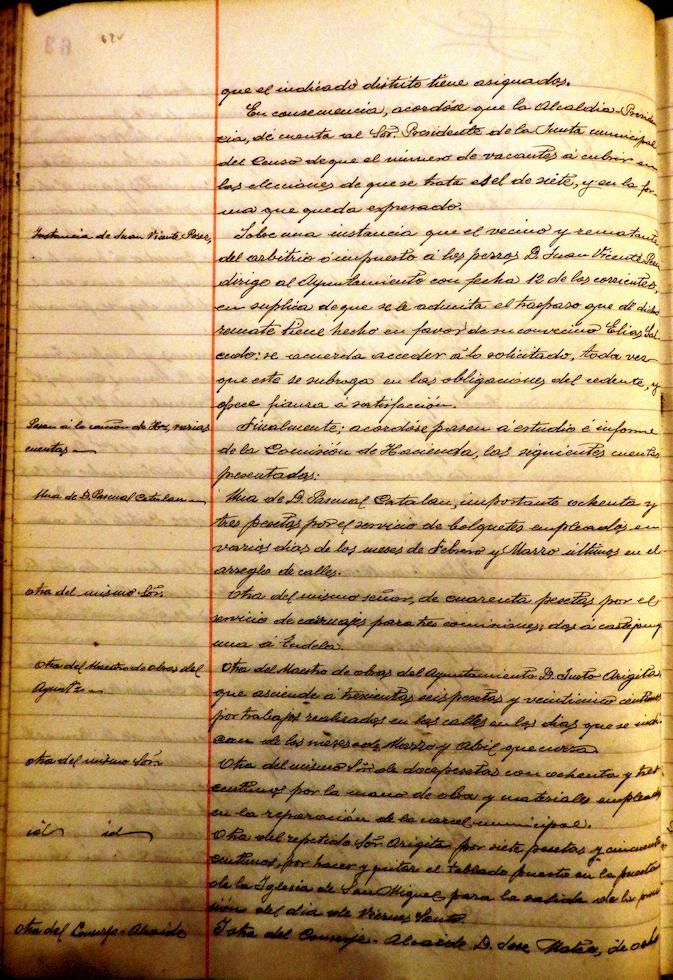 62v
que el indicado distrito tiene asignados.
En consecuencia, acordóse que la Alcaldia-Presiden
cia, dé cuenta al Sor. Presidente de la Junta municipal
del Censo de que el número de vacantes á cubrir en
las elecciones de que se trata es el de siete, y en la for
ma que queda expresado.
Instancia de Juan Vicente Perez,
una instancia que el vecino y rematante
del arbitrio ó impuesto á los perros D. Juan Vicente Perez
dirige al Ayuntamiento con fecha 12 de los corrientes,
en suplica de que se le admita el traspaso que de dicho
remate tiene hecho en favor de su convecino Elias Sal
cedo: se acuerda acceder á lo solicitado, toda vez
que este se subroga en las obligaciones del cedente, y
ofrece fianza á satisfacción.
Pasan á la comon de Hda, varias
cuentas
Finalmente; acordóse pasen á estudio é informe
de la Comisión de Hacienda, las siguientes cuentas
presentadas:
Una de D. Pascual Catalan
Una de D. Pascual Catalan, importante ochenta y
tres pesetas por el servicio de bolquetes empleados en
varios dias de los meses de Febrero y Marzo últimos en el
arreglo de calles.
otra del mismo Sor.
Otra del mismo señor, de cuarenta pesetas por el
servicio de carruajes para tres comisiones; dos á Castejon y
una á Tudela.
Otra del Maestro de obras del
Ayunto
Otra del Maestro de obras del Ayuntamiento D. Justo Arigita
que asciende á trescientas seis pesetas y veinticinco centimos
por trabajos realizados en las calles en los dias que se indi
can de los meses de Marzo y Abril que cursa
otra del mismo Sor.
Otra del mismo Sor. de doce pesetas con ochenta y tres
centimos por la mano de obra y materiales empleados
en la reparación de la carcel municipal.
id id
Otra del repetido Sor. Arigita por siete pesetas y cincuenta
centimos, por hacer y quitar el tablado puesto en la puerta
de la Iglesia de San Miguel para la salida de la proce
sión del dia de Viernes Santo
otra del Conserje-Alcaide
Y otra del Conserje-Alcaide D. Jose Matea, de ocho